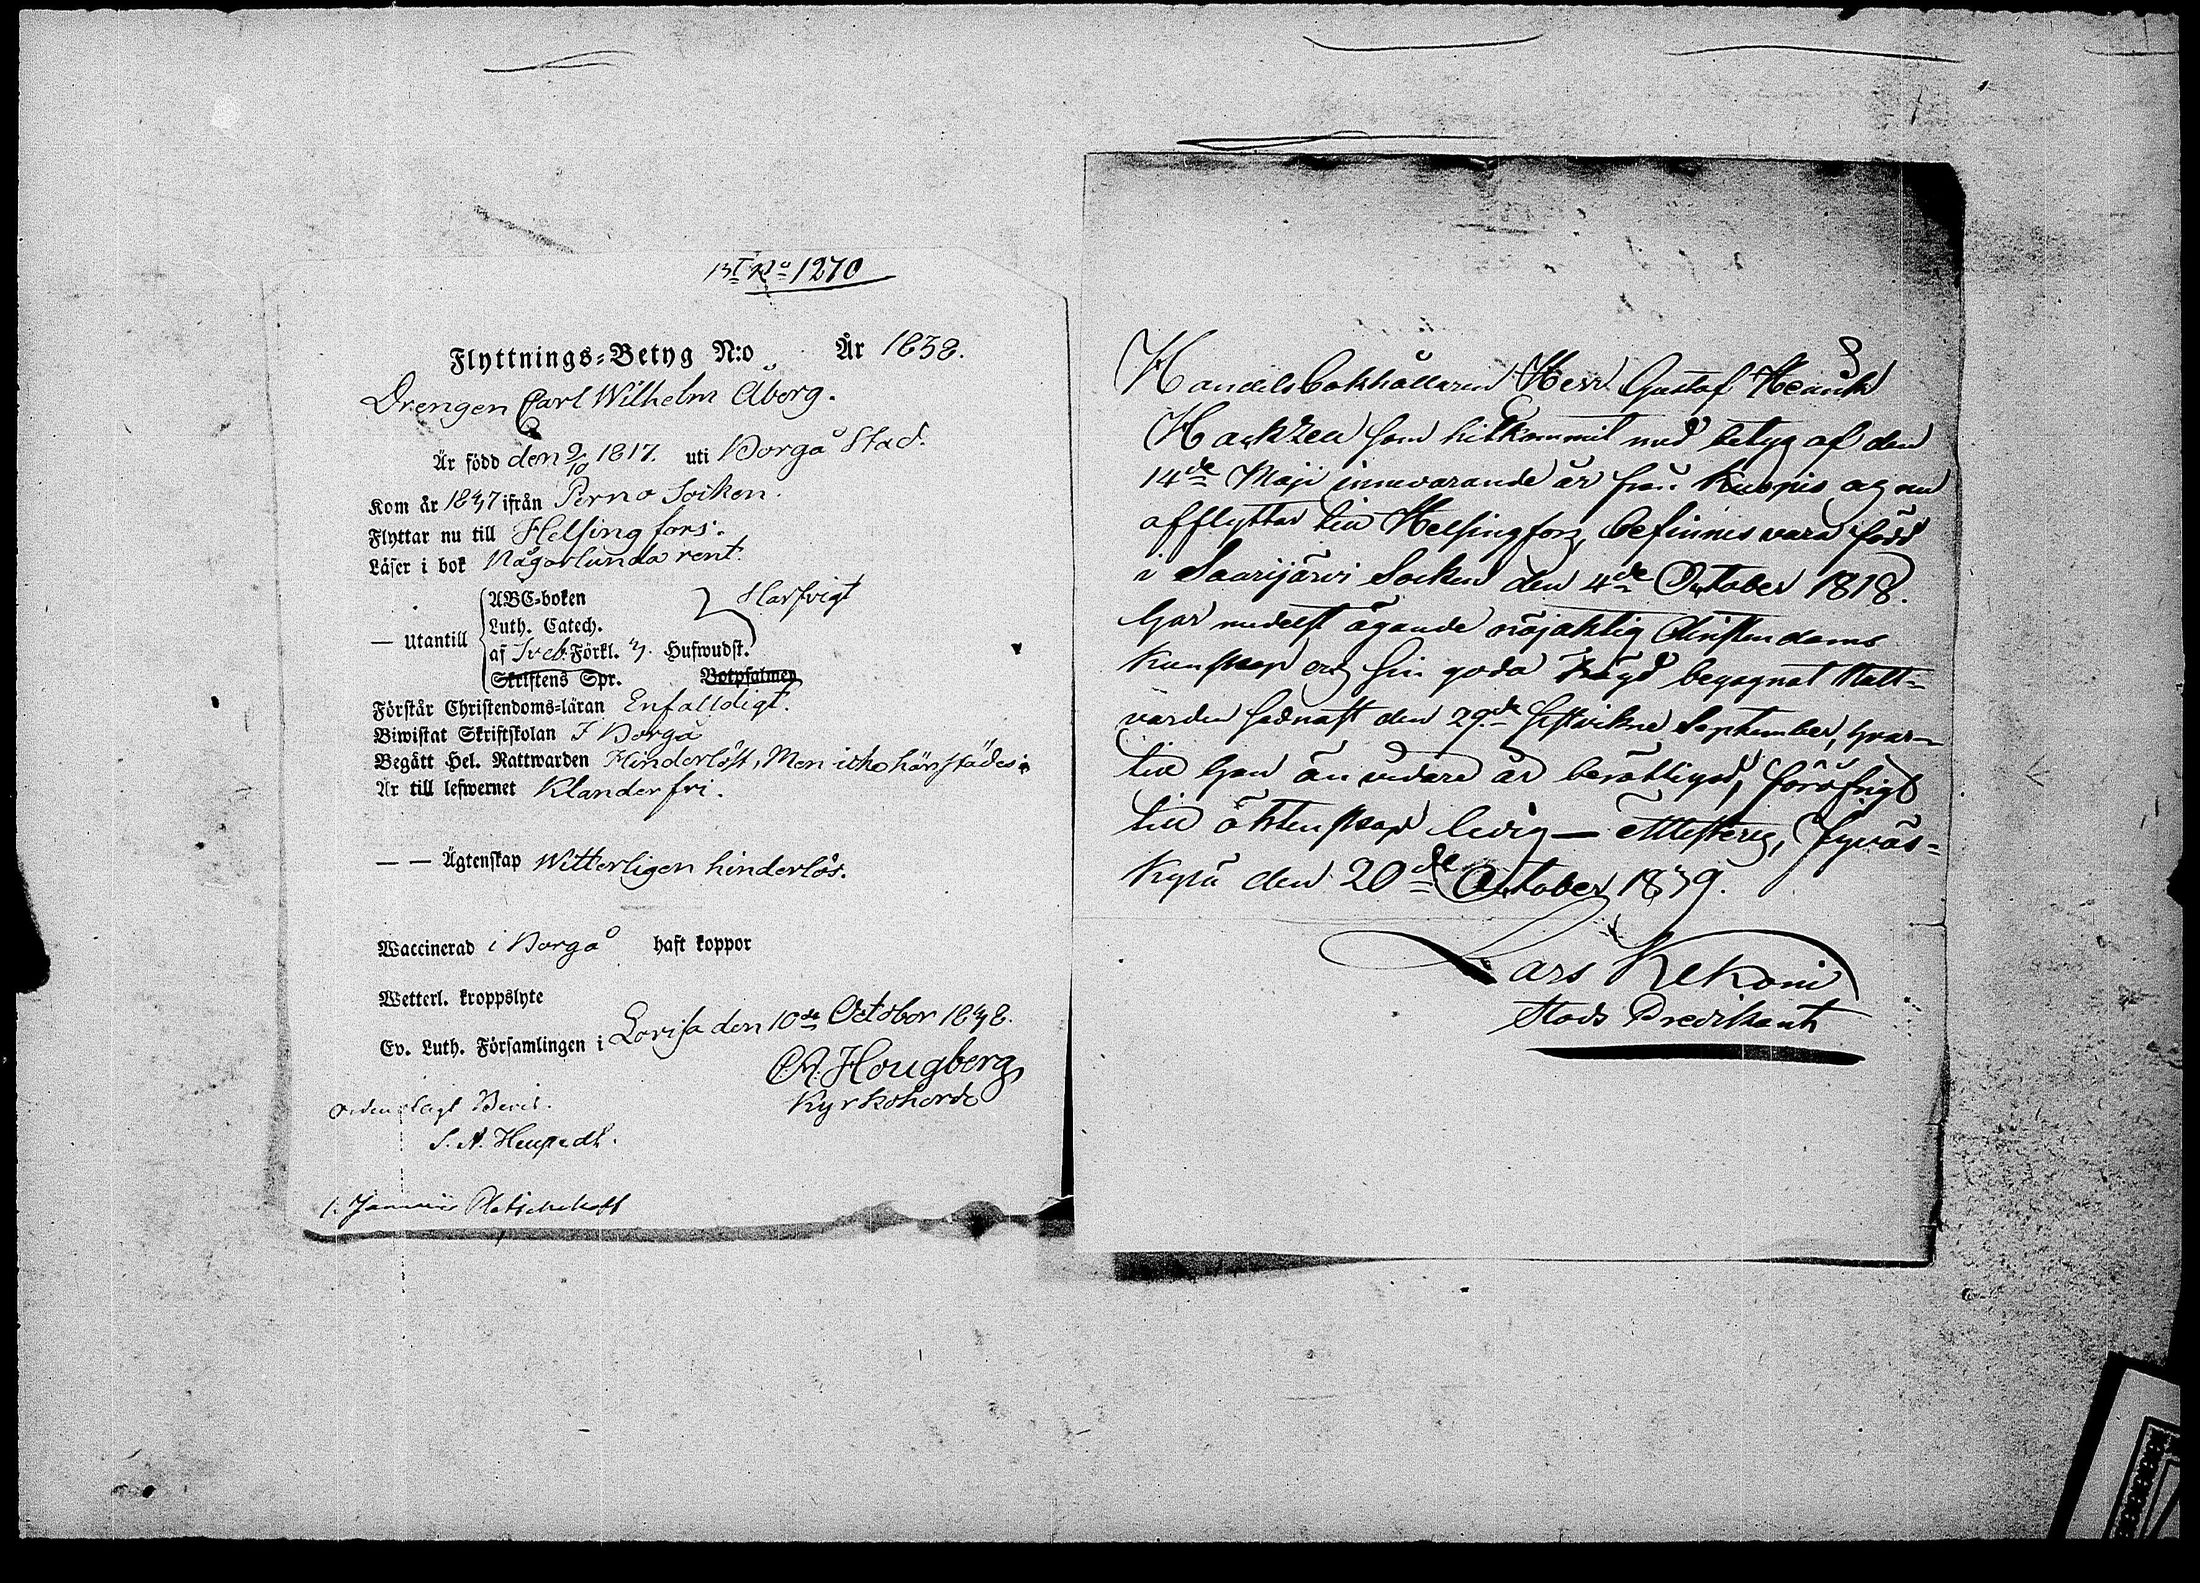 BT No 1270
Flyttnings-Betyg N:o År 1838.
Drengen Carl Wilhelm Åberg.
Är född den 9/10 1817. uti Borgå Stad.
Kom år 1837 ifrån Perno Socken.
Flyttar nu till Helsingfors.
Läser i bok Någorlunda rent.
— Utantill
ABC-boken Slarfvigt
Luth. Catech.
af Sveb. Förkl. 3. Hufwudst.
Skriftens Spr. Botpsalmen
Förstår Christendoms-läran Enfalldigt.
Biwistat Skriftskolan I Borgå
Begått Hel. Nattwarden Hinderlöst, Men icke härstädes.
Är till lefwernet Klanderfri.
— — Ägtenskap Witterligen hinderlös.
Waccinerad i Borgå haft koppor
Wetterl. kroppslyte
Ev. Luth. Församlingen i Lovisa den 10de October 1838.
Hougberg
Kyrkoherde
S. A.
1.
Handelsbokhållaren Herr Gustaf Henrik
Hackzell som hitkommit med betyg af den
14de Maji innevarande år från Kuopio och nu
afflyttar till Helsingfors, befinnes vara född
i Saarijärvi Socken den 4de October 1818.
Har medelst ägande nöjaktig Christendoms
Kunskap och sin goda frägd begagnat Natt-
varden sednast den 29de sistvikne September, hvar-
till han än vidare är berättigad, föröfrigt
till äktenskap ledig — Attesterar, Jyväs-
kylä den 20de October 1839.
Lars Kekoni
Stads Predikant